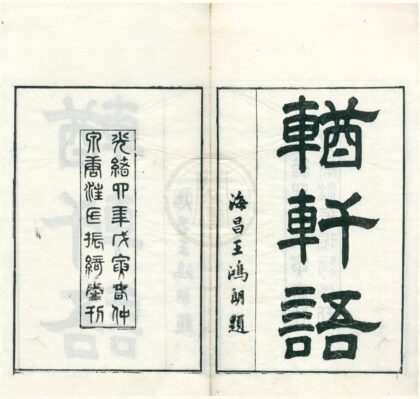 輶軒語
海昌王鴻朗題
光緒四年戊寅春仲
泉唐汪氏振綺堂刊